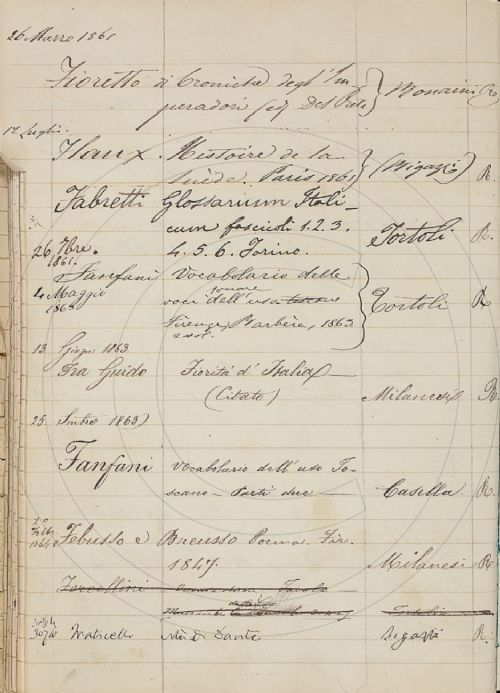 26 Marzo 1861
Fioretto di Croniche degl' Im-
peradori (ed Del Prete) Bonaini R.
1º Luglio.
Flaux Histoire de la
Suède. Paris 1861 (Bigazzi) R.
Fabretti Glossarium Itali-
cum fascicoli 1.2.3.
4.5.6. Torino. Tortoli R.
26 7bre.
1861.
Fanfani Vocabolario delle
4 Maggio
1863
voci dell'uso toscano
Firenze, Barbèra, 1863 Tortoli R
2 vol.
13 Giugno 1863
Fra Guido Fiorità d'Italia
(Citato) Milanesi R.
25 1863
Fanfani Vocabolario dell'uso To-
scano — Parti due — Casella R.
20
Febb.
1864
Febusso e Breusso Poema Fir.
1847. Milanesi R
Forcellini
Tortoli
Fraticelli Vita di Dante Bigazzi R.